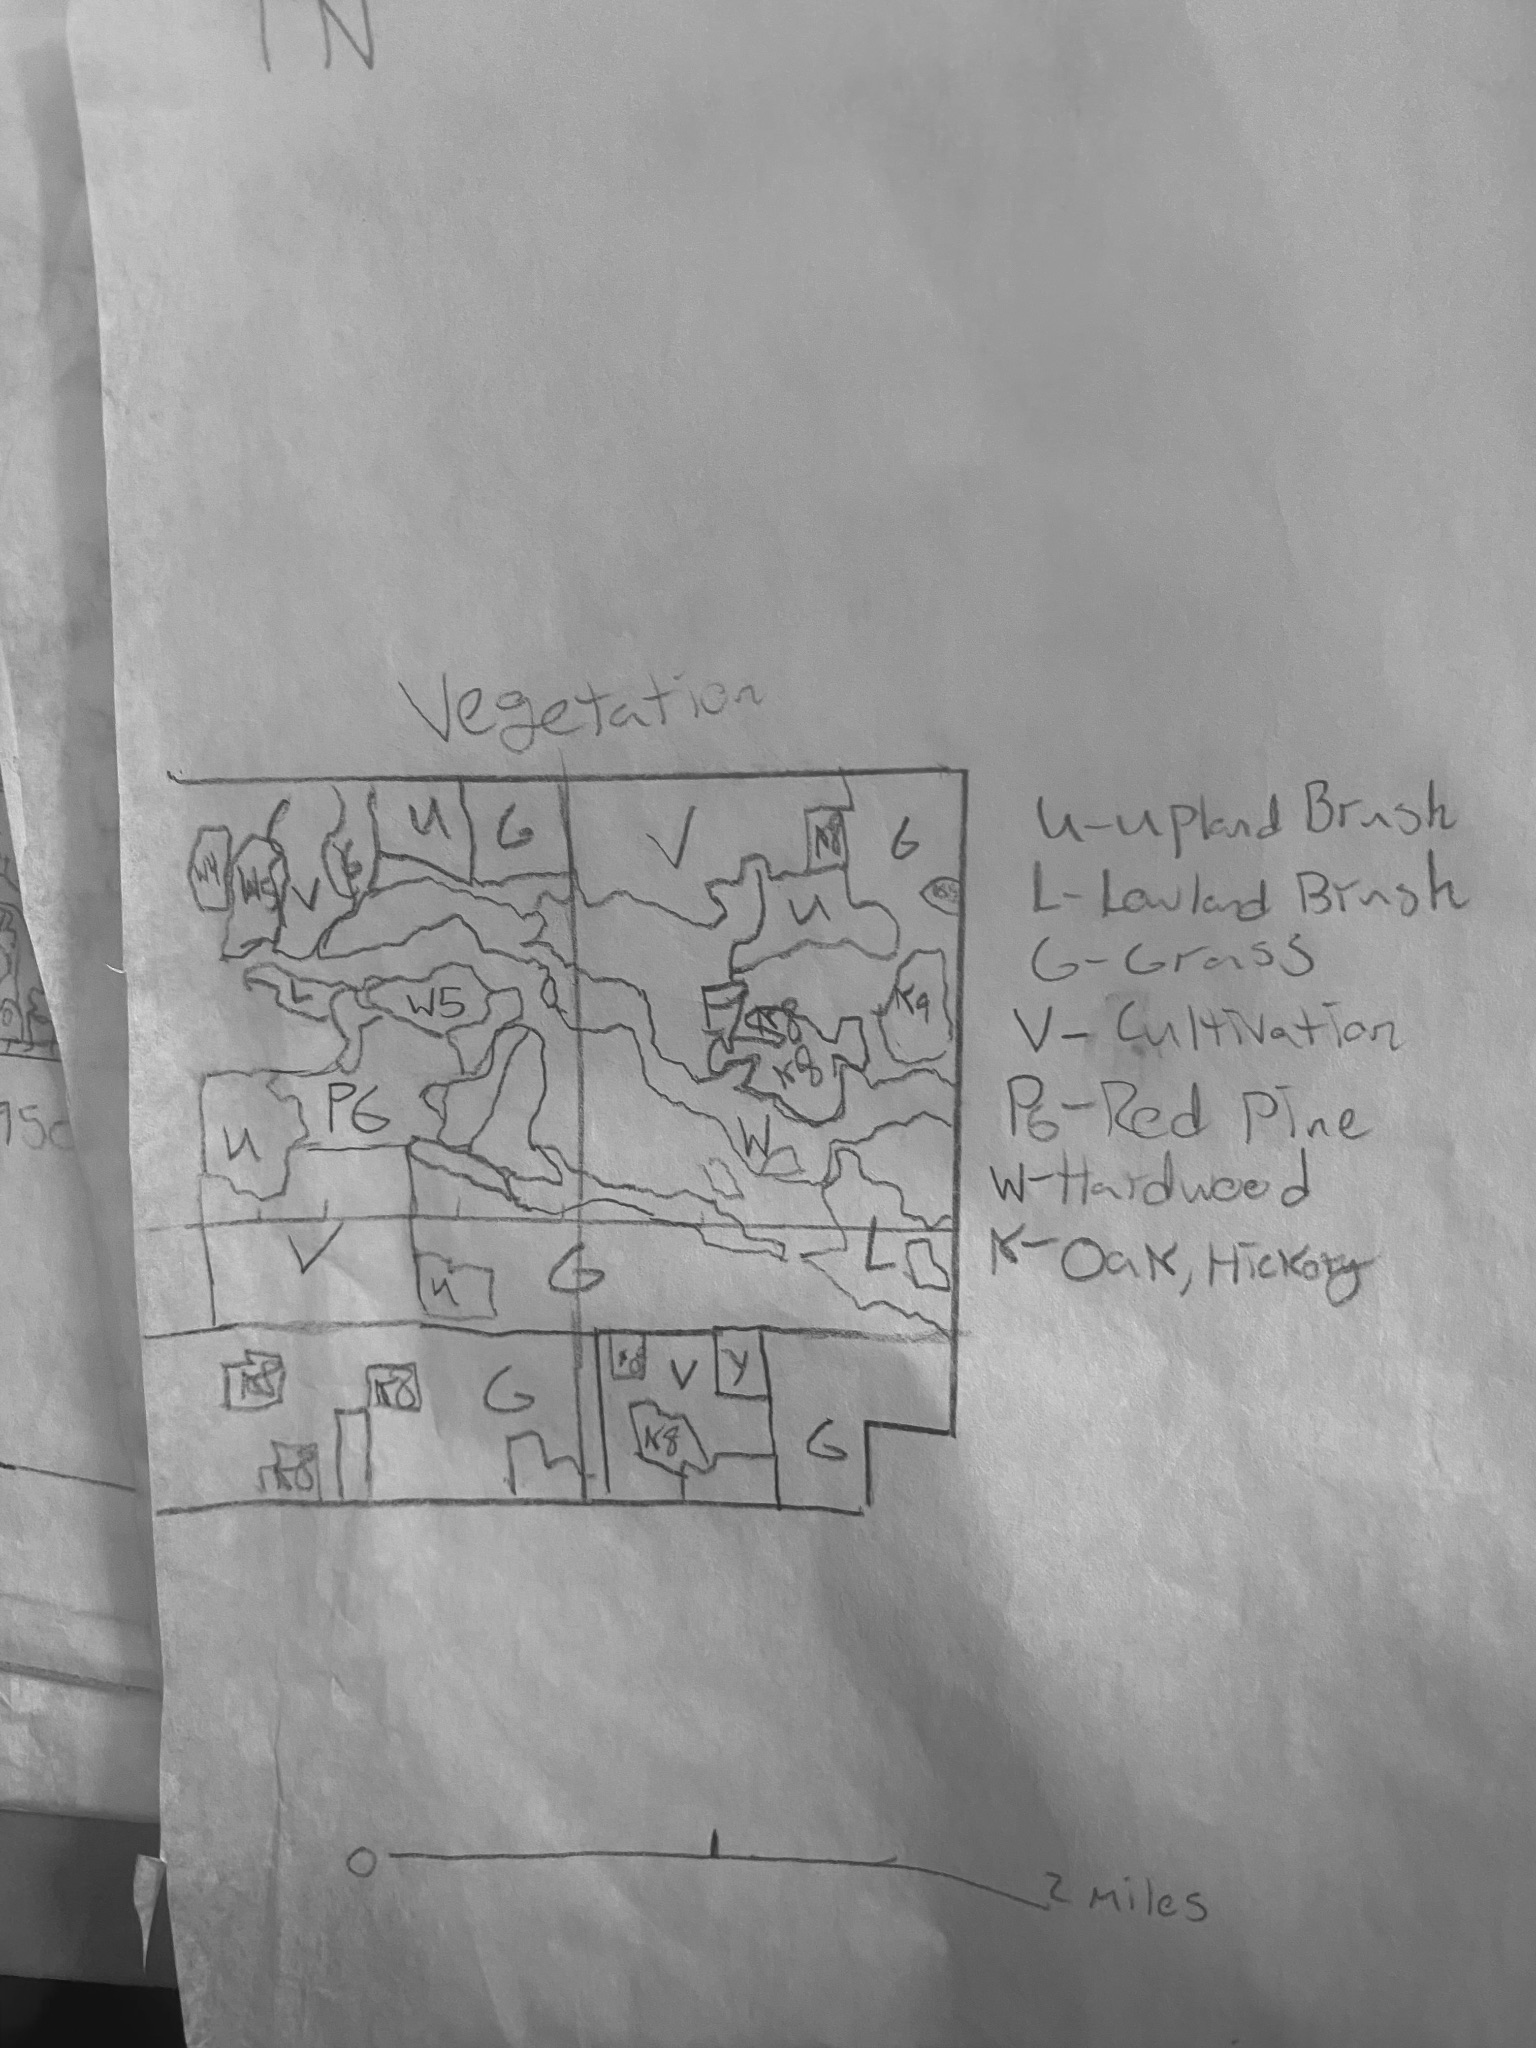 N
Vegetation
U G V K8 G
W4 W5 V
U
L W5 K8 K9
K8
P6
U W
V G L
U
K8 K8 G V Y
K8 K8 G
U-Upland Brush
L-Lowland Brush
G-Grass
V-Cultivation
P6-Red Pine
W-Hardwood
K-Oak, Hickory
0 2 Miles